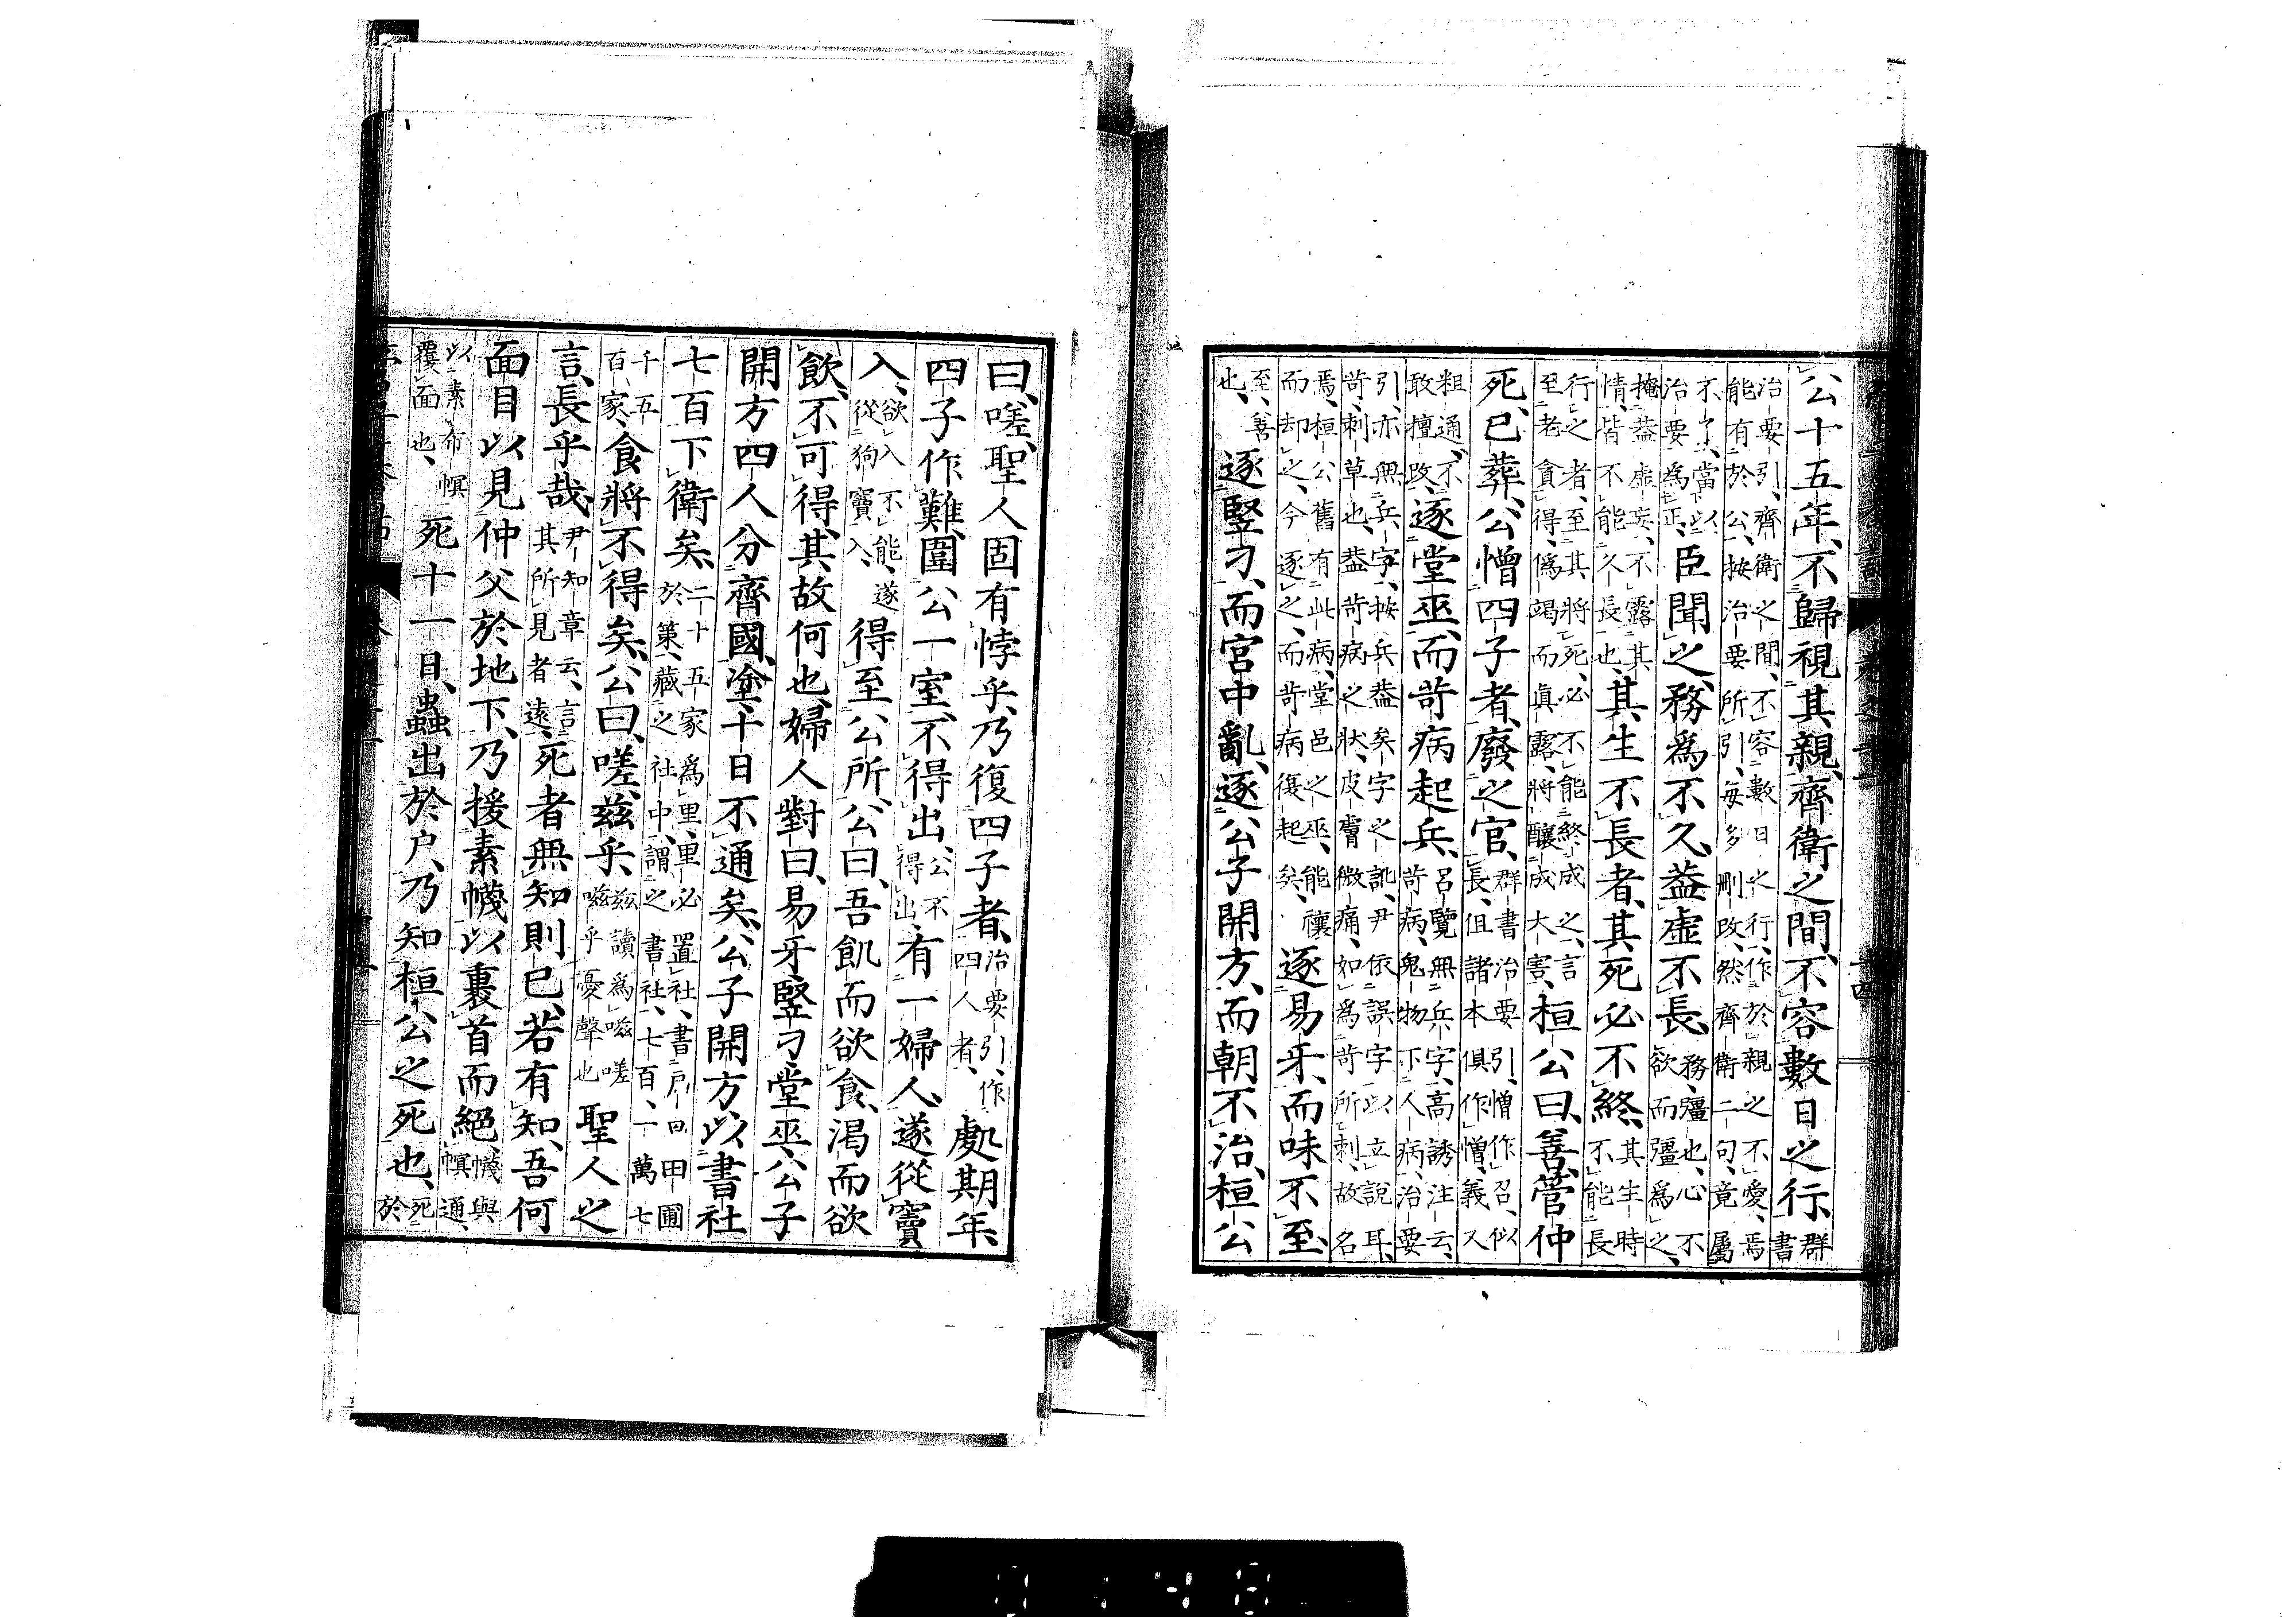 公十五年、不歸視其親、齊衛之間、不容數日之行、群
書
治要引、齊衛之間、不容數日之行、作於親之不愛、焉
能有於公、按治要所引、每多刪改、然齊衛二句、竟屬
不了、當以
治要為正、臣聞之、務爲不久、蓋虛不長、務、彊也、心不
欲而彊爲之、
掩蓋虛妄、不露其
情、皆不能久長也、其生不長者、其死必不終、其生時
不能長
行之者、至其將死、必不能終成之、言
至老貪得、僞竭而眞露、將釀成大害、桓公曰、善、管仲
死、已葬、公憎四子者、廢之官、群書治要引、憎作召、似
長、但諸本俱作憎、義又
粗通、不
敢擅改、逐堂巫、而苛病起兵、呂覽無兵字、高誘注云、
苛病、鬼物下人病、治要
引、亦無兵字、按兵蓋矣字之訛、尹依誤字以立說耳、
苛、刺草也、蓋苛病之狀、皮膚微痛、如爲苛所刺、故名
焉、桓公舊有此病、堂邑之巫、能禳
而却之、今逐之、而苛病復起矣、逐易牙、而味不至、
至、善
也、逐豎刁、而宮中亂、逐公子開方、而朝不治、桓公
曰、嗟、聖人固有悖乎、乃復四子者、治要引、作
四人者、處期年、
四子作難、圍公一室、不得出、公不
得出、有一婦人、遂從竇
入、欲入不能、遂
從狗竇入、得至公所、公曰、吾飢而欲食、渴而欲
飲、不可得、其故何也、婦人對曰、易牙豎刁、堂巫、公子
開方四人分齊國、塗、十日不通矣、公子開方、以書社
七百下衛矣、二十五家爲里、里必置社、書戶口田圃
於策、藏之社中、謂之書社、七百、一萬七
千五
百家、食將不得矣、公曰、嗟、茲乎、茲讀爲嗞、嗟
嗞乎憂聲也聖人之
言、長乎哉、尹知章云、言
其所見者遠、死者無知則已、若有知、吾何
面目以見仲父於地下、乃援素幭以裹首而絕、幭與
幎通、
以素布幎
覆面也、死十一日、蟲出於戶、乃知桓公之死也、死
於